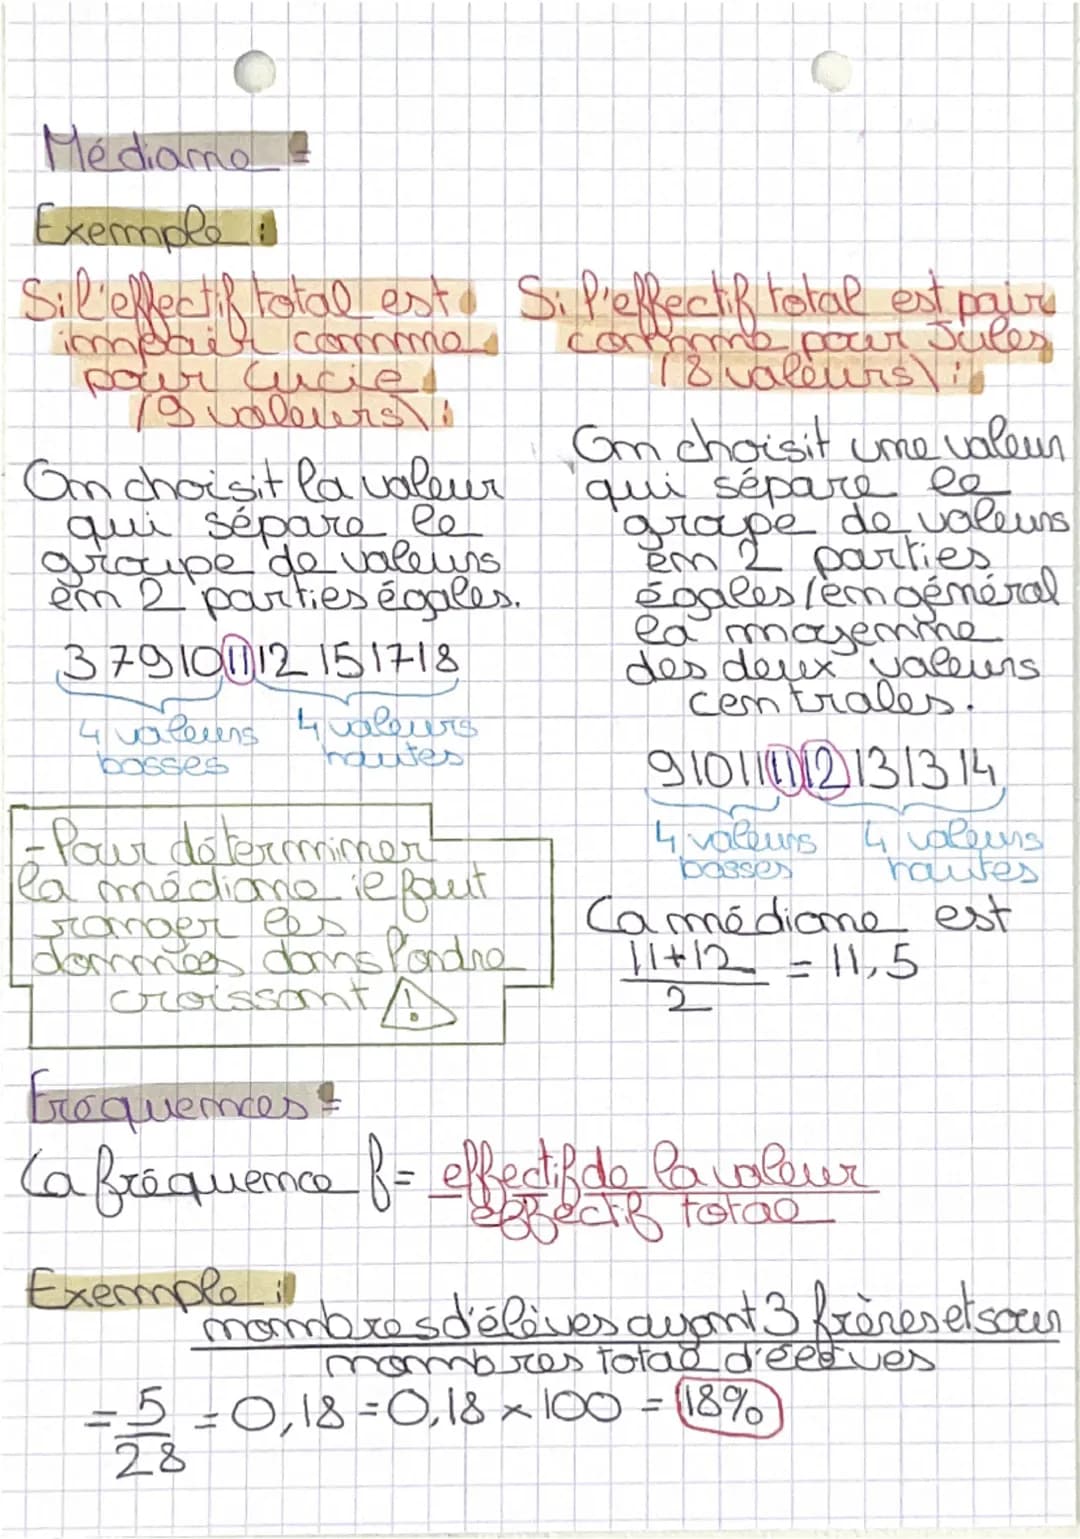 Médiane =
Exemple :
Si l'effectif total est
impair comme
pour Lucie
(9 valeurs) :
On choisit la valeur
qui sépare le
groupe de valeurs
en 2 parties égales.
3 7 9 10 11 12 15 17 18
4 valeurs
basses
4 valeurs
hautes
- Pour déterminer
la médiane il faut
ranger les
données dans l'ordre
croissant !
Si l'effectif total est pair
comme pour Jules
(8 valeurs) :
On choisit une valeur
qui sépare le
groupe de valeurs
en 2 parties
égales (en général
la moyenne
des deux valeurs
centrales.
9 10 11 11 12 13 13 14
4 valeurs
basses
4 valeurs
hautes
La médiane est
11+12 / 2 = 11,5
Fréquences =
La fréquence f = effectif de la valeur
effectif total
Exemple :
nombres d'élèves ayant 3 frères et sœur
nombres total d'élèves
= 5/28 = 0,18 = 0,18 × 100 = 18%